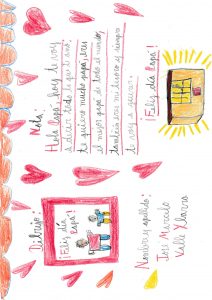 Nota:
Hola Papá hoy te voy
a decir todo lo que te amo
te quiero mucho papá, eres
el mejor papá de todo el mundo,
también eres mi tesoro y siempre
te voy a querer.
¡Feliz día Papá!
Dibujo:
¡Feliz día
Papá!
Nombre y apellido:
José Marcelo
Valle